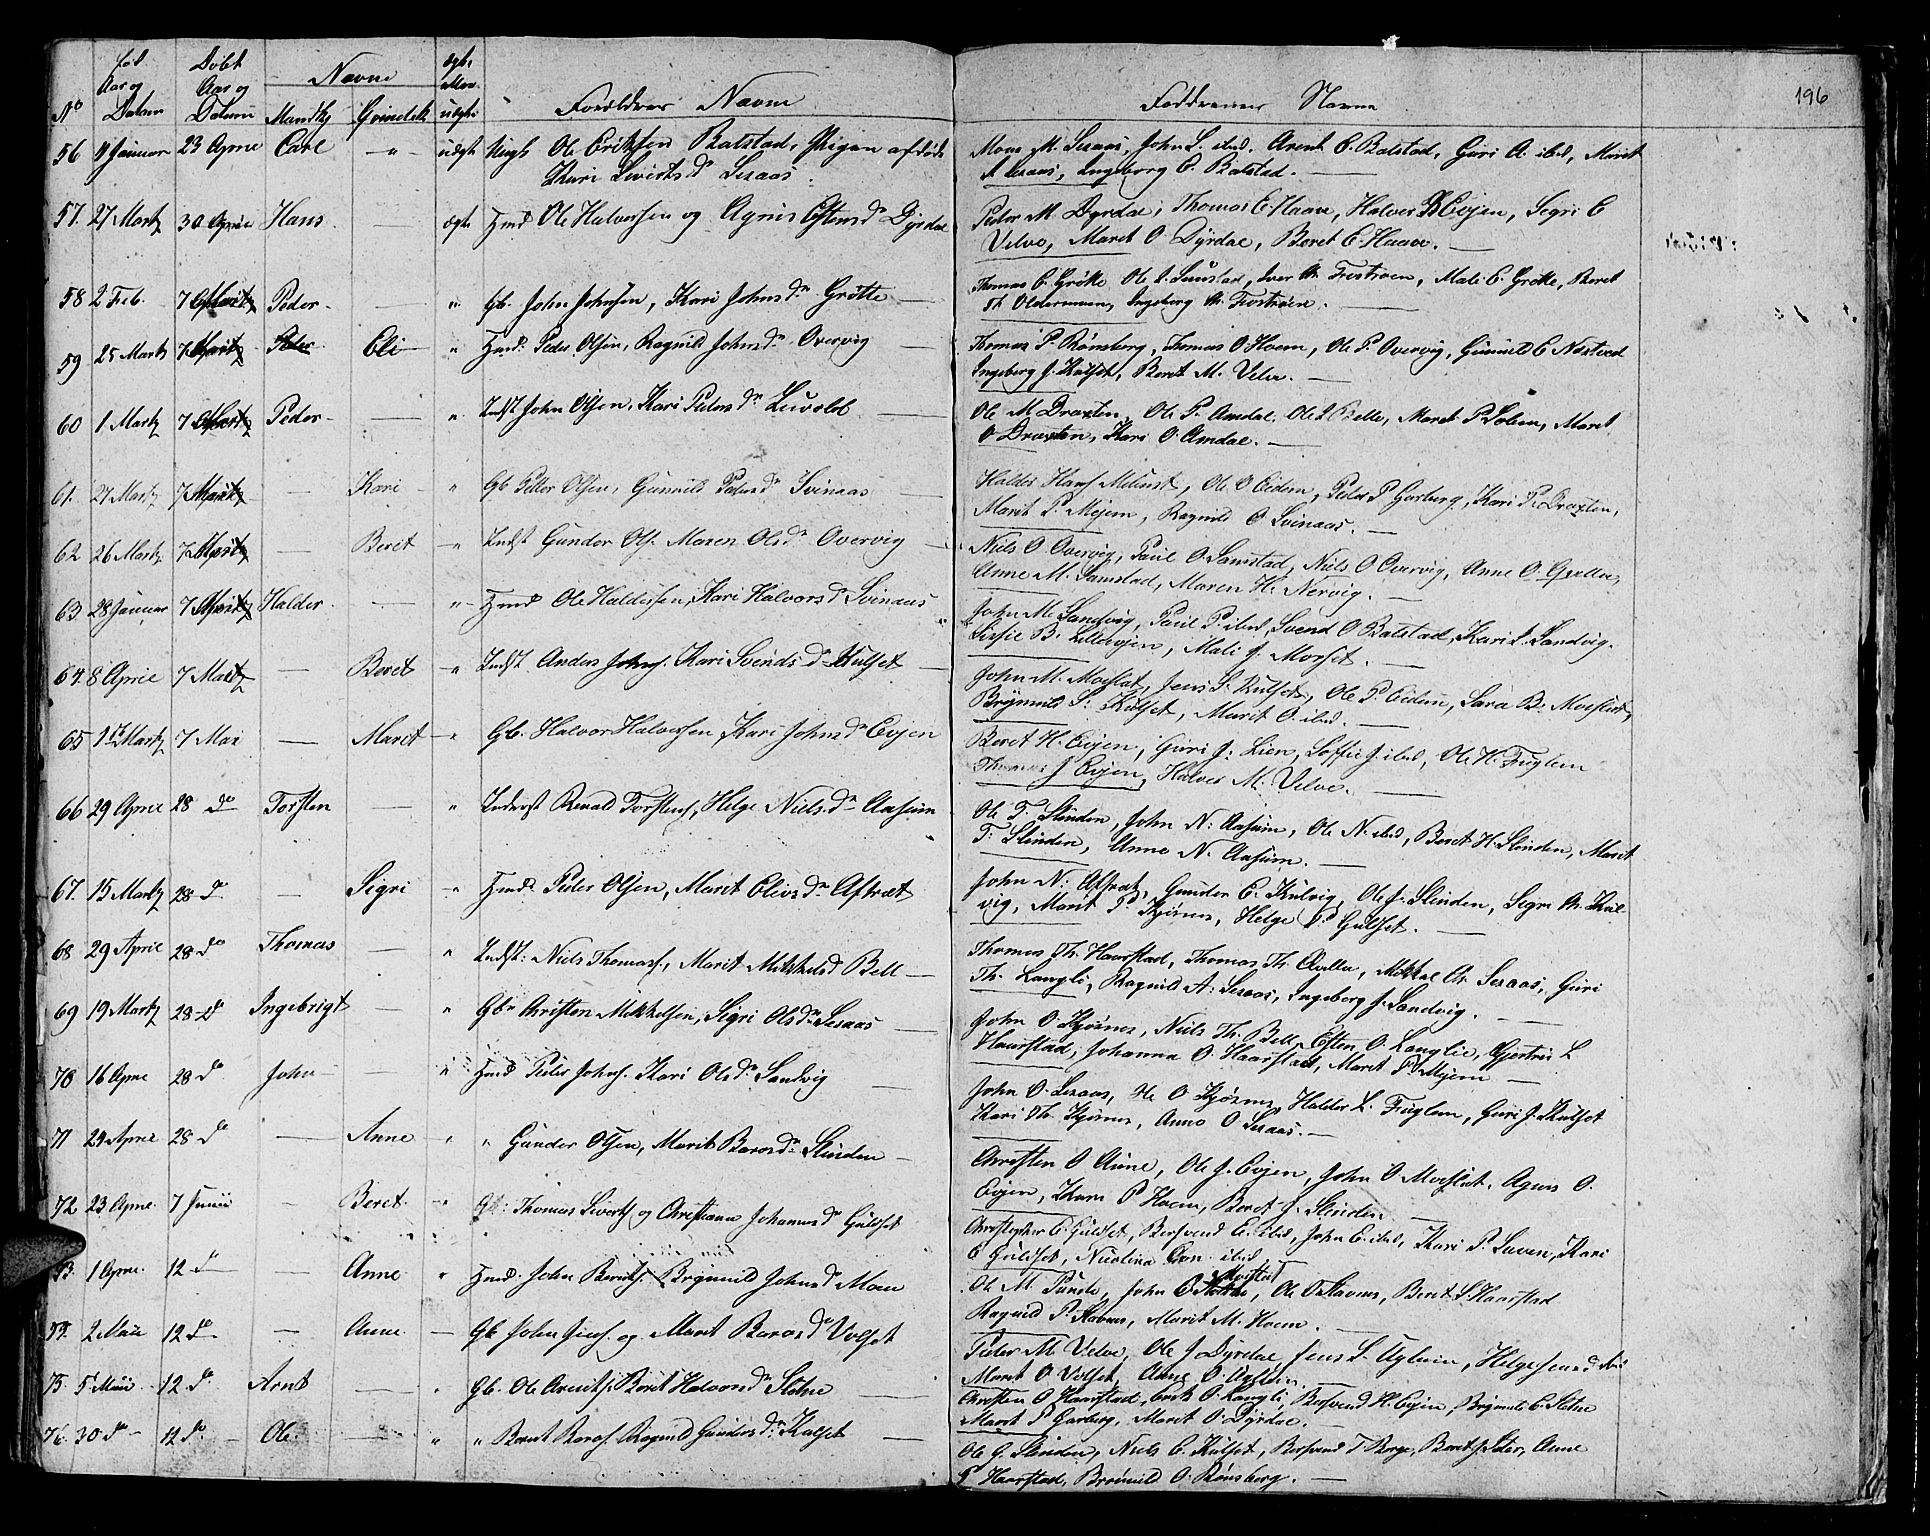 196
Fød Aar og Datum Døbt Aar og Datum Navne ægte eller uægte
No Mandkj Qvindek Forældres Navne Faddernes Navne
56 11 Januar 23 April Carl " uægte Ungk Ole Eriksen Balstad, Pigen afdøde
Kari Sivertsdr Seraas
Mons M. Seraas, John S. ibid. Arent E. Balstad, Guri A. ibid, Marit
A Seraas, Ingeborg E. Balstad.
57. 27 Martz 30 April Hans ægte Hmd Ole Halvorsen og Agnis Estensdr Dyrdal
Peder M. Dyrdal, Thomas E. Haave, Halvor Evjen, Segri E
Velve, Maret O. Dyrdae, Beret E. Haave.
58 2 Feb. 7 Peder " Gb. John Johnsen, Kari Johnsdr Grøtte
Thomas E. Grøtte Mali E. Grøtte, Beret
Th Oldermoen, Ingeborg
59 25 Martz 7 Eli " Hmd. Peder Olsen, Ragnild Johnsdr Overvig
Thomas P. Rønsberg, Thomas O Hoem, Ole P. Overvig, Gunnild E Næstved
Ingeborg J. Kulset, Beret M. Velve.
60 1 Martz 7 Peder " Indst John Olsen, Kari Pedersdr
Ole M Draxten, Ole P. Amdal, Ole Belle, Maret P. Solem, Maret
O Draxten, Kari O. Amdae.
61. 27 Martz 7 Kari " Gb Peder Olsen, Gunnild Pedersdr Svinaas
Halder Hans Melinst, Ole O Eidem, Peder P Garberg, Kari P. Draxten,
Marit P. Mejem, Ragnild O Svinaas.
62 26 Martz 7 Beret " Indst Gunder Ols. Maren Olsdr Overvig
Niels O Overvig, Paul O. Samstad, Niels O Overvig, Anne O
Anne M. Samstad, Maren H. Nervig.
63 28 Januar 7 Halder " Hmd Ole Haldersen, Kari Halvorsdr Svinaas
John M. Sandvig, Paul P. ibid, Svend O Balstad, Kari S. Sandvig.
Sissie B. Lillevjen, Mali J. Morset.
64. 8 April 7 Beret " Indst Anders Johns. Kari Svendsdr Kulset
John M. Moeslet, Jens S. Kulset, Ole P. Eidem, Sara B. Moeslet,
Brynnild S. Kulset, Marit O. ibid.
65 Martz 7 Mai Maret " Gb. Halvor Halvorsen, Kari Johnsdr Evjen
Beret H. Evjen, Guri J. Lien, Soffie J. ibid, Ole H. Fuglem
Thomas J Evjen, Halvor M. Velve.
66 29 April 28 do Torsten " Inderst Renald Torstens, Helge Nielsdr Aasum
Ole T. Slinden, John N. Aasum, Ole N. ibid, Beret H. Slinden, Marit
T. Slinden, Anne N. Aasum.
67. 15 Martz 28 do Segri " Hmd. Peder Olsen, Marit Elivsdr Aftræt
John N. Aftræt, Gunder E. Kulvig, Ole J. Slinden, Segri Kul-
vig, Marit P Kjøsnes, Helge P. Guldset.
68 29 April 28 do Thomas " Indst: Niels Thomas., Marit Mikkelsd Bell
Thomas Th. Haarstad, Thomas Th. Mikkal Seraas, Guri
Th. Langli, Ragnild A. Seraas, Ingeborg J. Sandvig.
69 19 Martz 28 do Ingebrigt " Gbr Christen Mikkelsen, Sigri Olsdr Seraas
John O. Kjøsnes, Niels Th. Bell, Esten O. Langlie, L
Haarstad, Johanna O. Haarstad, Maret P Mejem
70 16 April 28 do John " Hmd Peder Johns. Kari Olsdr Sandvig
John O. Seraas, Ole O Kjøsnes, Halder L. Fuglem, Guri J. Kulset
Kari Th. Kjøsnes, Anne O Seraas.
71 29 April 28 do Anne " " Gunder Olsen, Marit Baroesdr Slinden
Christen O Aune, Ole J. Evjen, John O Moeslet, Agnes O.
Evjen, Kari P Hoem, Beret J. Slinden
72 23 April 7 Junii Beret " Gb: Thomas Sivert. og Christiana Johannesd Guldset
Christopher E. Guldset, Bersvend E. ibid, John E. ibid, Kari P. Kari
E Guldset, Nicolina ibid
73. 1 April. 12 do Anne " Hmd. John Berits. Brynnild Johnsdr Moen
Ole M. Punde, John E Moeslet, Ole O Stavnes, Beret L Haarstad
Ragnild P. Stavnes, Marit M. Hoem.
74. 2 Maii 12 do Anne Gb John Jens. og Maret Baroesdr Volset
Peder M. Velve, Ole J Dyrdae, Jens S. Uglem,
Maret O Volset, Anne
75. 5 Maii. 12 do Arnt " Gb. Ole Arents. Beret Halvorsdr Slethe
Christen O Haarstad, Erik O. Langli, Bersvend H. Evjen, Brynnild E. Slethe
Maret P Garberg, Maret O. Dyrdae.
76. 30 do 12 do Ole " " Bernt Beros. Ragnild Gundersdr Kulset
Ole G. Slinden, Niels E. Kulset, Bersvend Beret Anne
Haarstad, Brønnild O. Rønsberg.